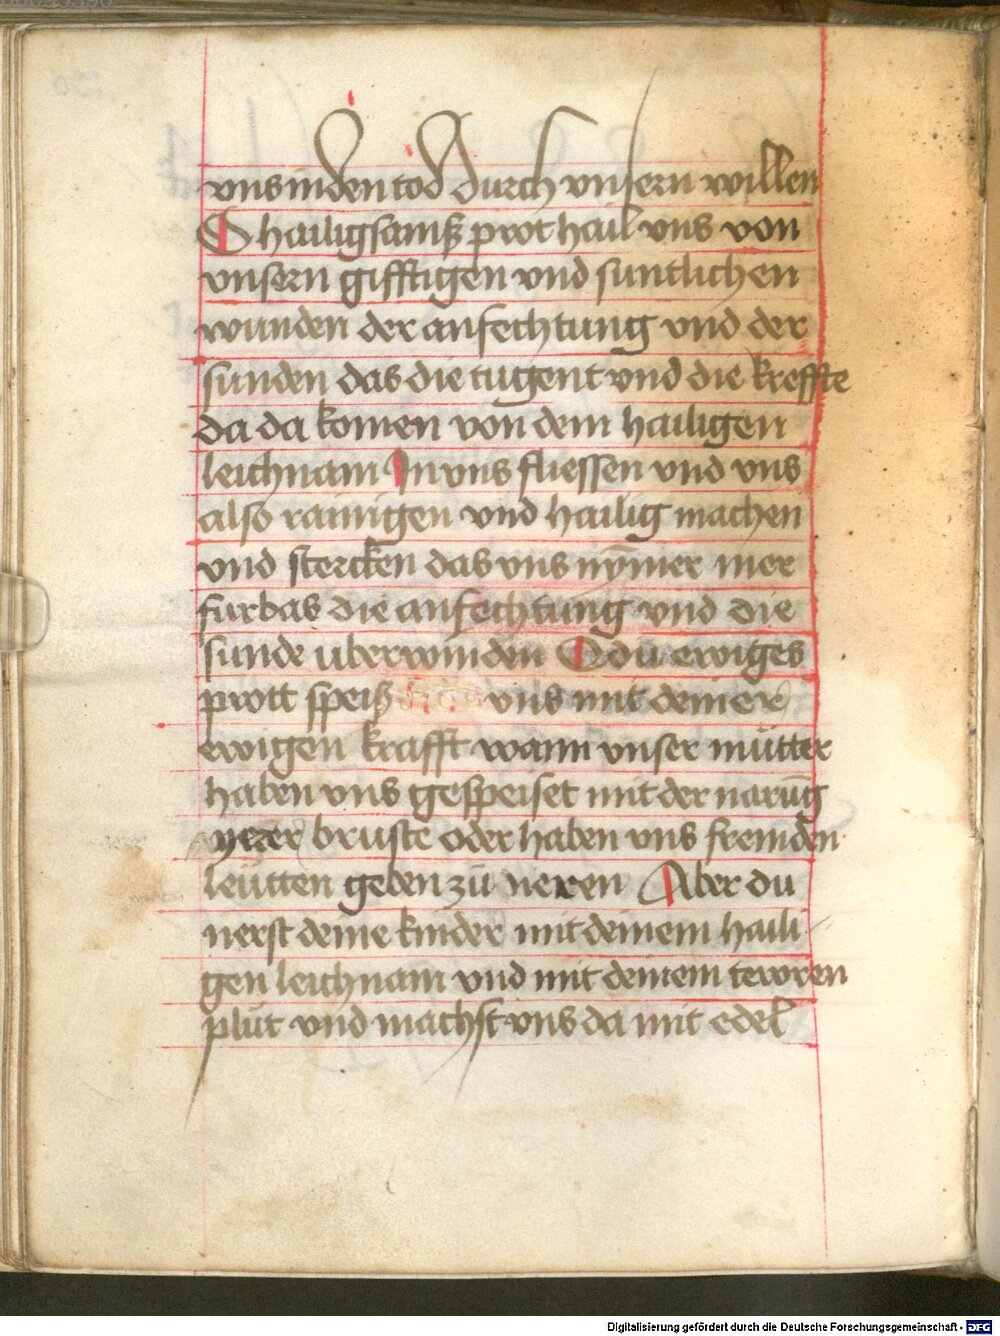 vns in den tod Durch vnsern willen
O hailigsamß prot hail vns von
vnsern gifftigen vnd suntlichen
wunden der anfechtung vnd der
sunden das die tugent vnd die kreffte
da da komen von dem hailigen
leichnam In vns fliessen vnd vns
also rainigen vnd hailig machen
vnd stercken das vns nym̄er mer
furbas die anfechtung vnd die
sunde uberwinden O du ewiges
prott speiß vns mit deiner
ewigen krafft wann vnser mütter
haben vns gespeiset mit der narūg
yerer bruste oder haben vns fremden
leütten geben zü neren Aber du
nerst deine kinder mit deinem haili
gen leichnam vnd mit deinem tewren
plüt vnd machst vns da mit edel
Digitalisierung gefördert durch die Deutsche Forschungsgemeinschaft - DFG